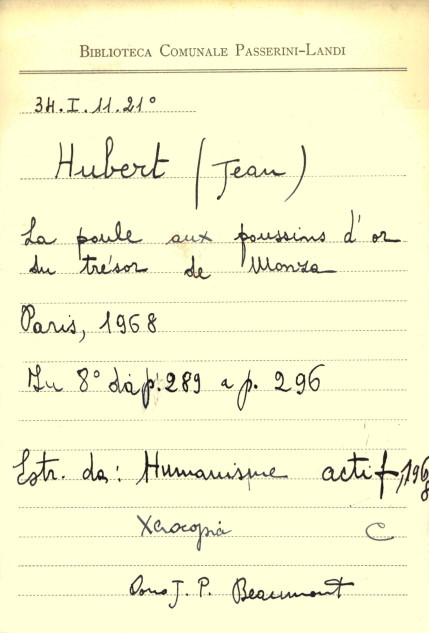 BIBLIOTECA COMUNALE PASSERINI-LANDI
34.I.11.21°
Hubert (Jean)
La poule aux poussins d'or
du trésor de Monza
Paris, 1968
In 8° da p. 289 a p. 296
Estr. da: Humanisme actif, 1968
Xerocopia C
Dono J. P. Beaumont